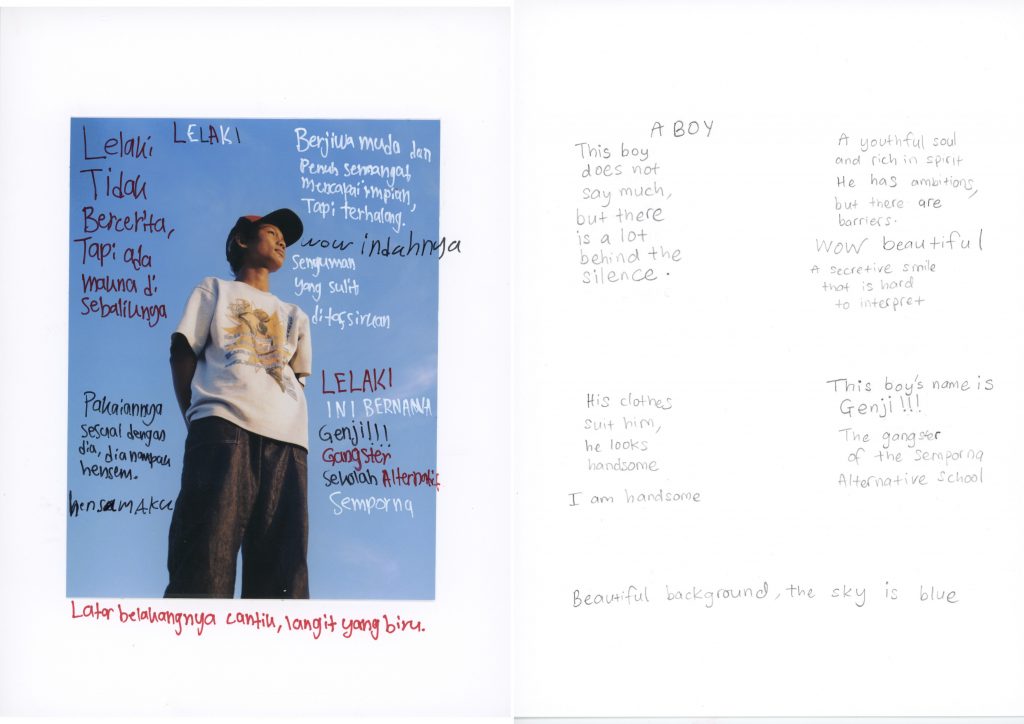 LELAKI
Lelaki
Tidak
Bercerita,
Tapi ada
makna di
sebaliknya
Berjiwa muda dan
Penuh semangat
mencapai impian,
Tapi terhalang.
wow indahnya
senyuman
yang sulit
ditafsirkan
Pakaiannya
sesuai dengan
dia, dia nampak
hensem.
hensem AKU
LELAKI
INI BERNAMA
Genji!!!
Gangster
sekolah Alternatif
Semporna
Latar belakangnya cantik, langit yang biru.
A BOY
This boy
does not
say much,
but there
is a lot
behind the
silence.
A youthful soul
and rich in spirit
He has ambitions,
but there are
barriers.
WOW beautiful
A secretive smile
that is hard
to interpret
His clothes
suit him,
he looks
handsome
I am handsome
This boy's name is
Genji!!!
The gangster
of the Semporna
Alternative School
Beautiful background, the sky is blue